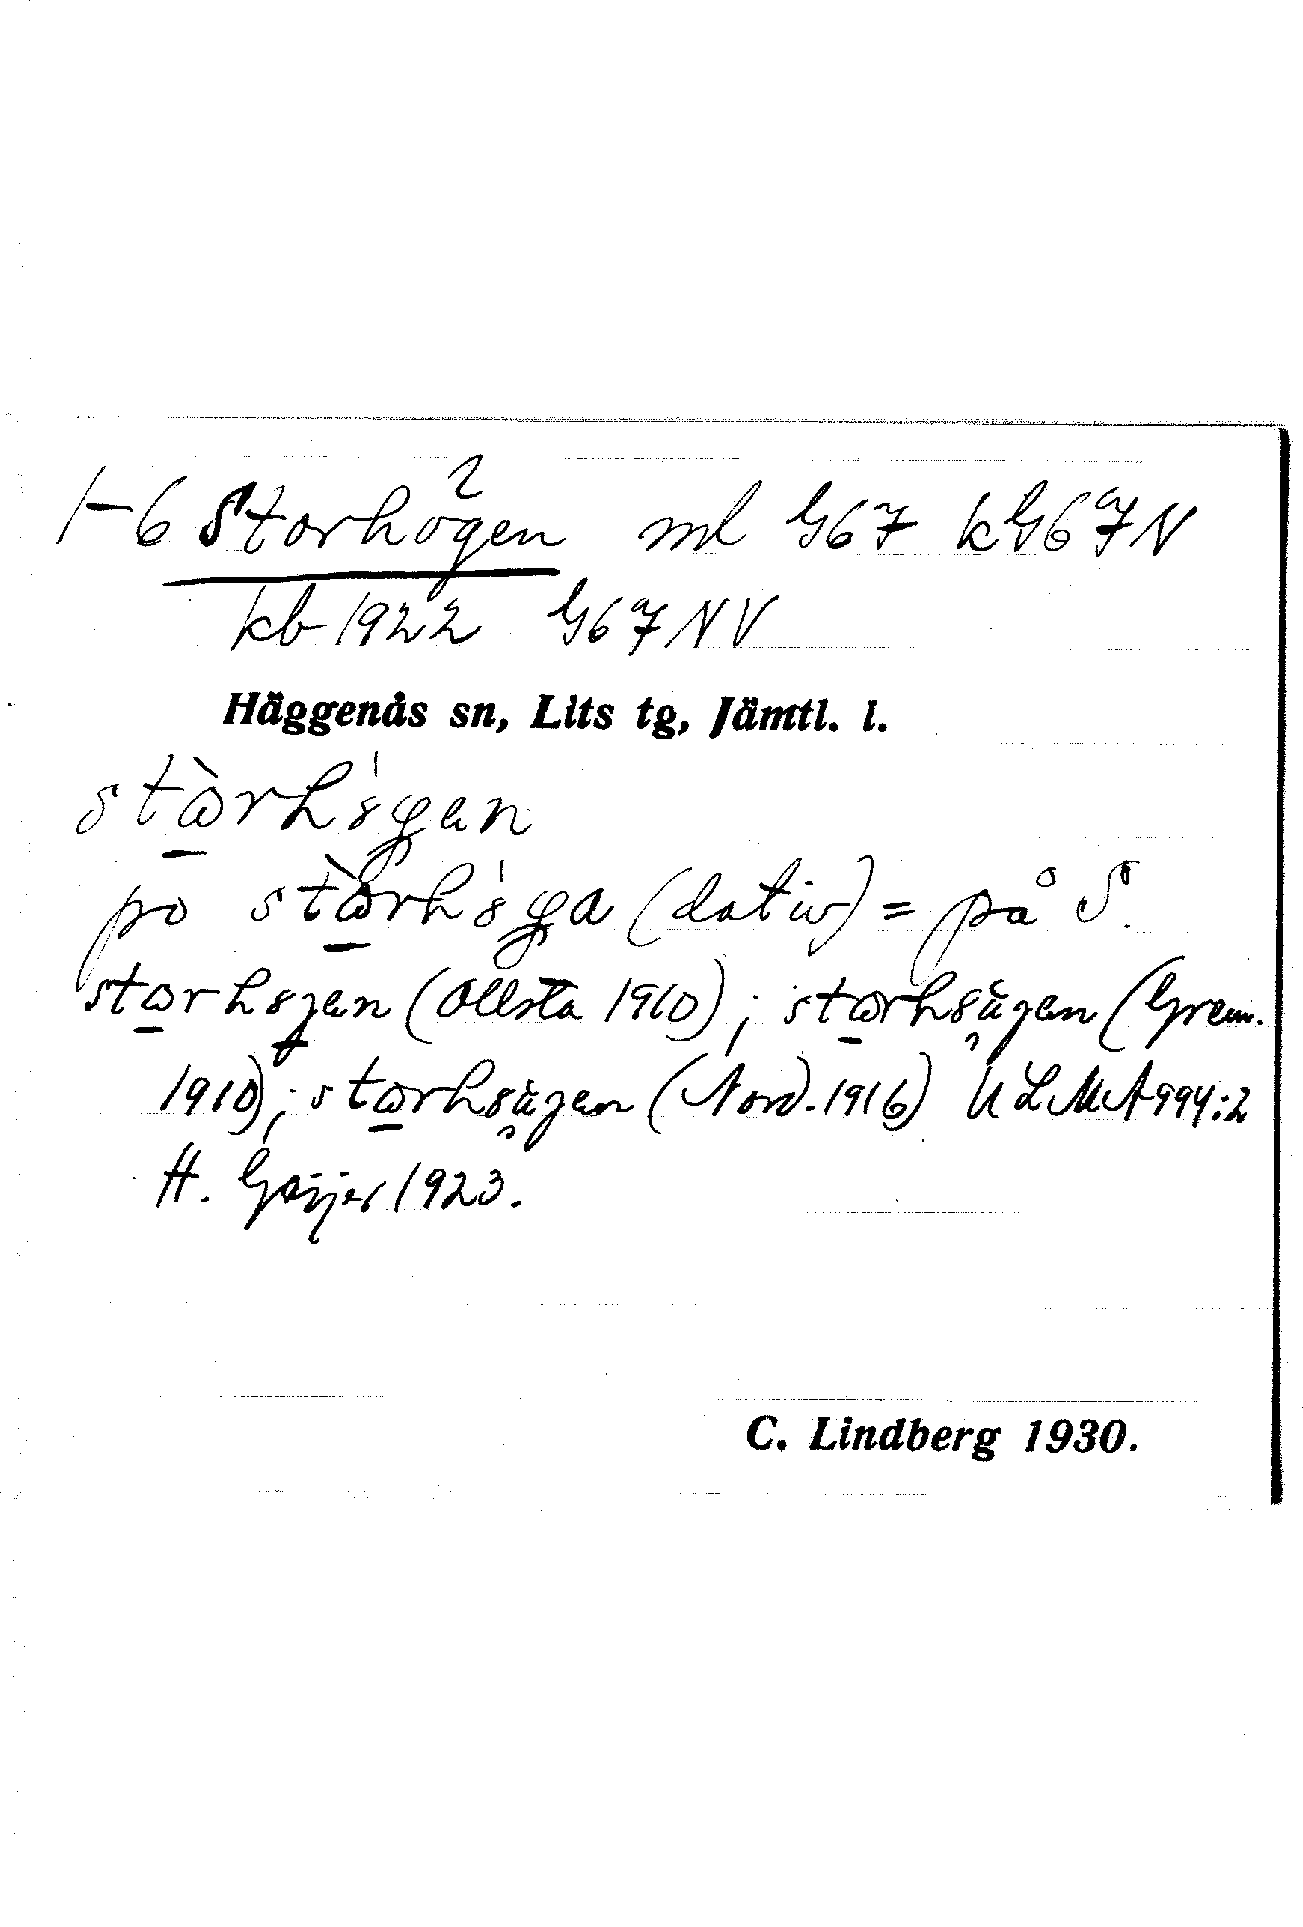 1-6 Storhögen ml G67 kG67N
kb 1922 G67NV
Häggenås sn, Lits tg, Jämtl. l.
stὼrhö́gen
po stὼrhö́ga (dativ) = på S.
storhögen (Ollsta 1910); storhsägen (Grenn.
1910); storhsägen (Nord. 1916) ULMA 994:2
H. Geijer 1923.
C. Lindberg 1930.